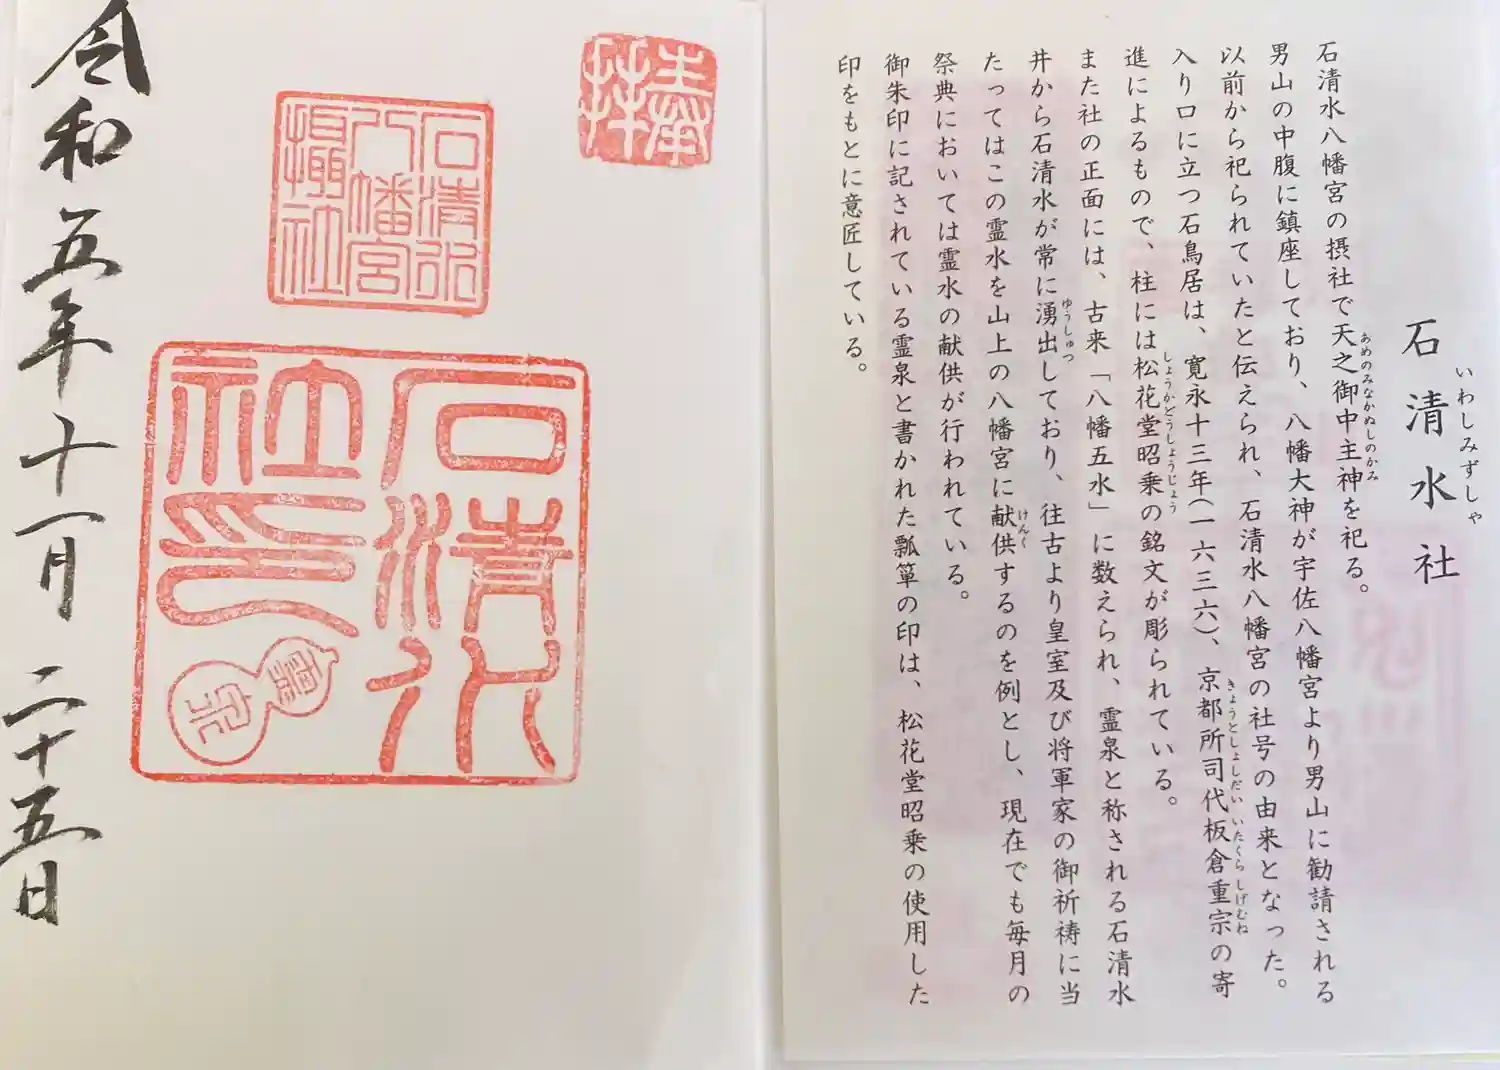 石清水社
いわしみずしゃ
石清水八幡宮の摂社で天之御中主神を祀る。
あめのみなかぬしのかみ
男山の中腹に鎮座しており、八幡大神が宇佐八幡宮より男山に勧請される
以前から祀られていたと伝えられ、石清水八幡宮の社号の由来となった。
入り口に立つ石鳥居は、寛永十三年(一六三六)、京都所司代板倉重宗の寄
きょうとしょしだいいたくらしげむね
進によるもので、柱には松花堂昭乗の銘文が彫られている。
しょうかどうしょうじょう
また社の正面には、古来「八幡五水」に数えられ、霊泉と称される石清水
井から石清水が常に湧出しており、往古より皇室及び将軍家の御祈祷に当
ゆうしゅつ
たってはこの霊水を山上の八幡宮に献供するのを例とし、現在でも毎月の
けんく
祭典においては霊水の献供が行われている。
御朱印に記されている霊泉と書かれた瓢箪の印は、松花堂昭乗の使用した
印をもとに意匠している。
奉拝
石清水
八幡宮
摂社
石清水
社印
靈泉
令和五年十一月二十五日